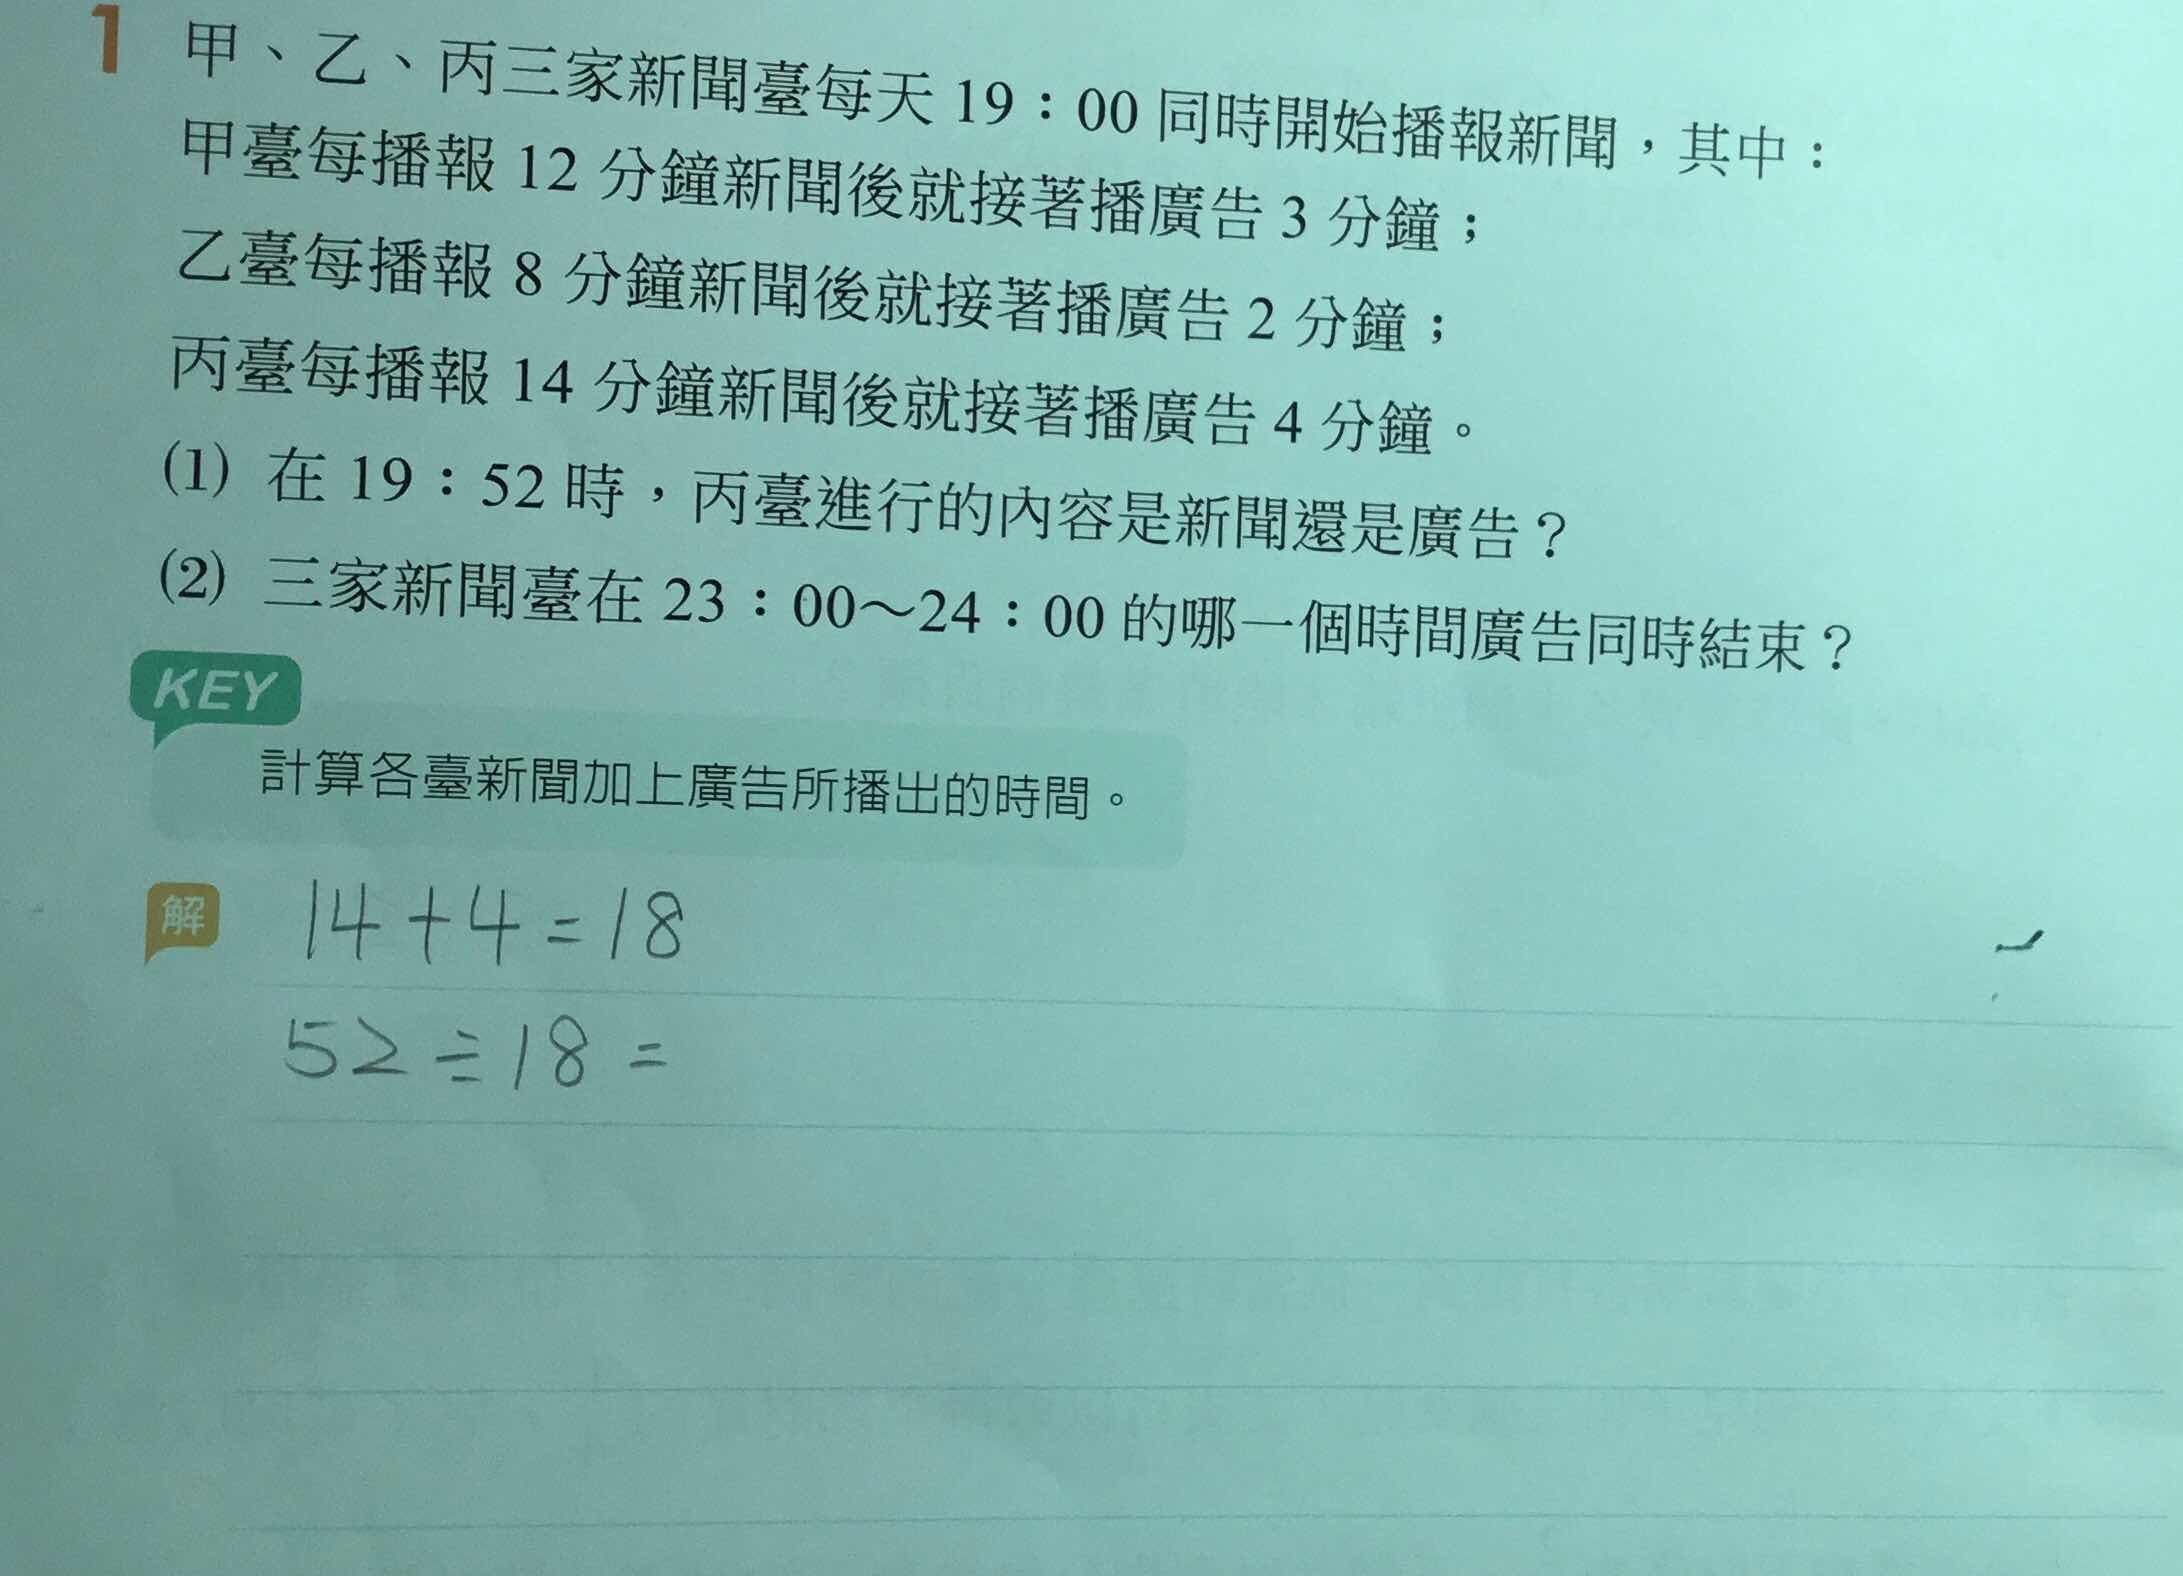 1 甲、乙、丙三家新聞臺每天 19：00 同時開始播報新聞，其中：
甲臺每播報 12 分鐘新聞後就接著播廣告 3 分鐘；
乙臺每播報 8 分鐘新聞後就接著播廣告 2 分鐘；
丙臺每播報 14 分鐘新聞後就接著播廣告 4 分鐘。
(1) 在 19：52 時，丙臺進行的內容是新聞還是廣告？
(2) 三家新聞臺在 23：00～24：00 的哪一個時間廣告同時結束？
KEY
計算各臺新聞加上廣告所播出的時間。
解 14+4=18
52÷18=